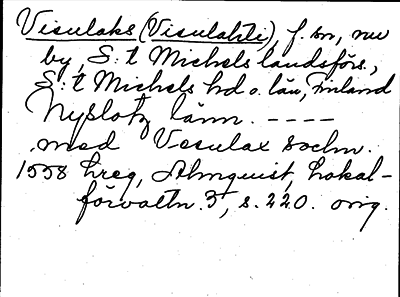 Visulaks (Visulahti), f. sn, nu
by, S:t Michels landsförs.,
S:t Michels hd o. län, Finland
Nyslotz länn. ----
med Vesulax sochn.
1558 hreg, Almquist, Lokal-
förvaltn. 3, s. 220. orig.